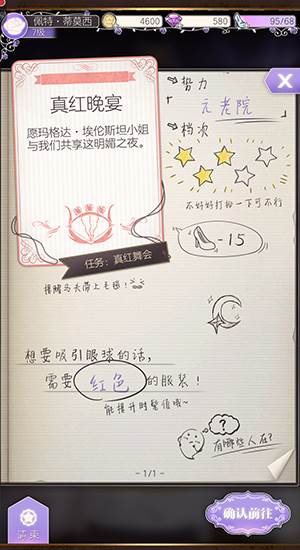 佩特·蒂莫西
7级
4600
580
95/68
真红晚宴
愿玛格达·埃伦斯坦小姐
与我们共享这明媚之夜。
任务：真红舞会
势力
元老院
档次
不好好打扮一下可不行
-15
想要吸引眼球的话，
需要 红色 的服装！
能提升时髦值哦~
?
有哪些人在?
- 1/1 -
请柬
确认前往